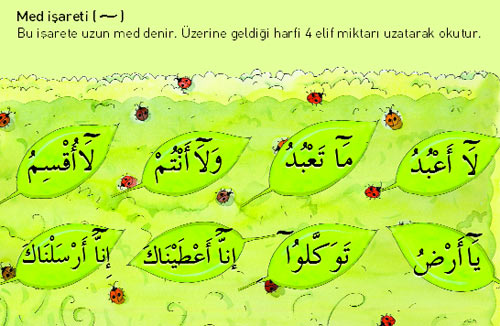 Med işareti ( ~ )
Bu işarete uzun med denir. Üzerine geldiği harfi 4 elif miktarı uzatarak okutur.
لَآ أَعْبُدُ مَآ تَعْبُدُ وَلَآ أَنْتُمْ لَآ أُقْسِمُ
يَآ أَرْضُ تَوَكَّلُوآ إِنَّآ أَعْطَيْنَاكَ إِنَّآ أَرْسَلْنَاكَ